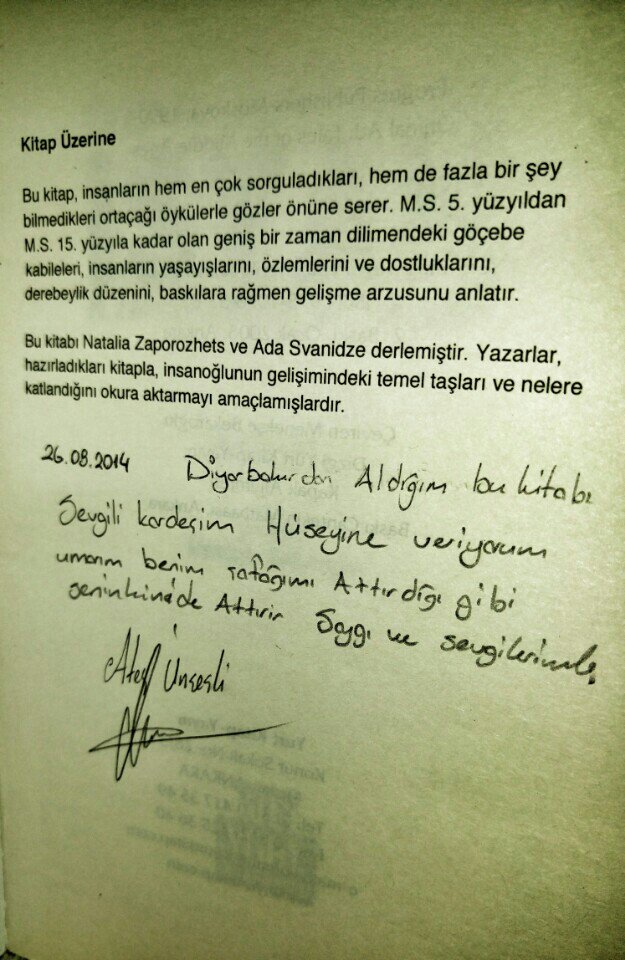 Kitap Üzerine
Bu kitap, insanların hem en çok sorguladıkları, hem de fazla bir şey
bilmedikleri ortaçağı öykülerle gözler önüne serer. M.S. 5. yüzyıldan
M.S. 15. yüzyıla kadar olan geniş bir zaman dilimendeki göçebe
kabileleri, insanların yaşayışlarını, özlemlerini ve dostluklarını,
derebeylik düzenini, baskılara rağmen gelişme arzusunu anlatır.
Bu kitabı Natalia Zaporozhets ve Ada Svanidze derlemiştir. Yazarlar,
hazırladıkları kitapla, insanoğlunun gelişimindeki temel taşları ve nelere
katlandığını okura aktarmayı amaçlamışlardır.
26.08.2014 Diyarbakırdan Aldığım bu kitabı
Sevgili kardeşim Hüseyine veriyorum
umarım benim şafağımı Attırdığı gibi
seninkinide Attırır Saygı ve sevgilerimle,
Ateş Ünsesli